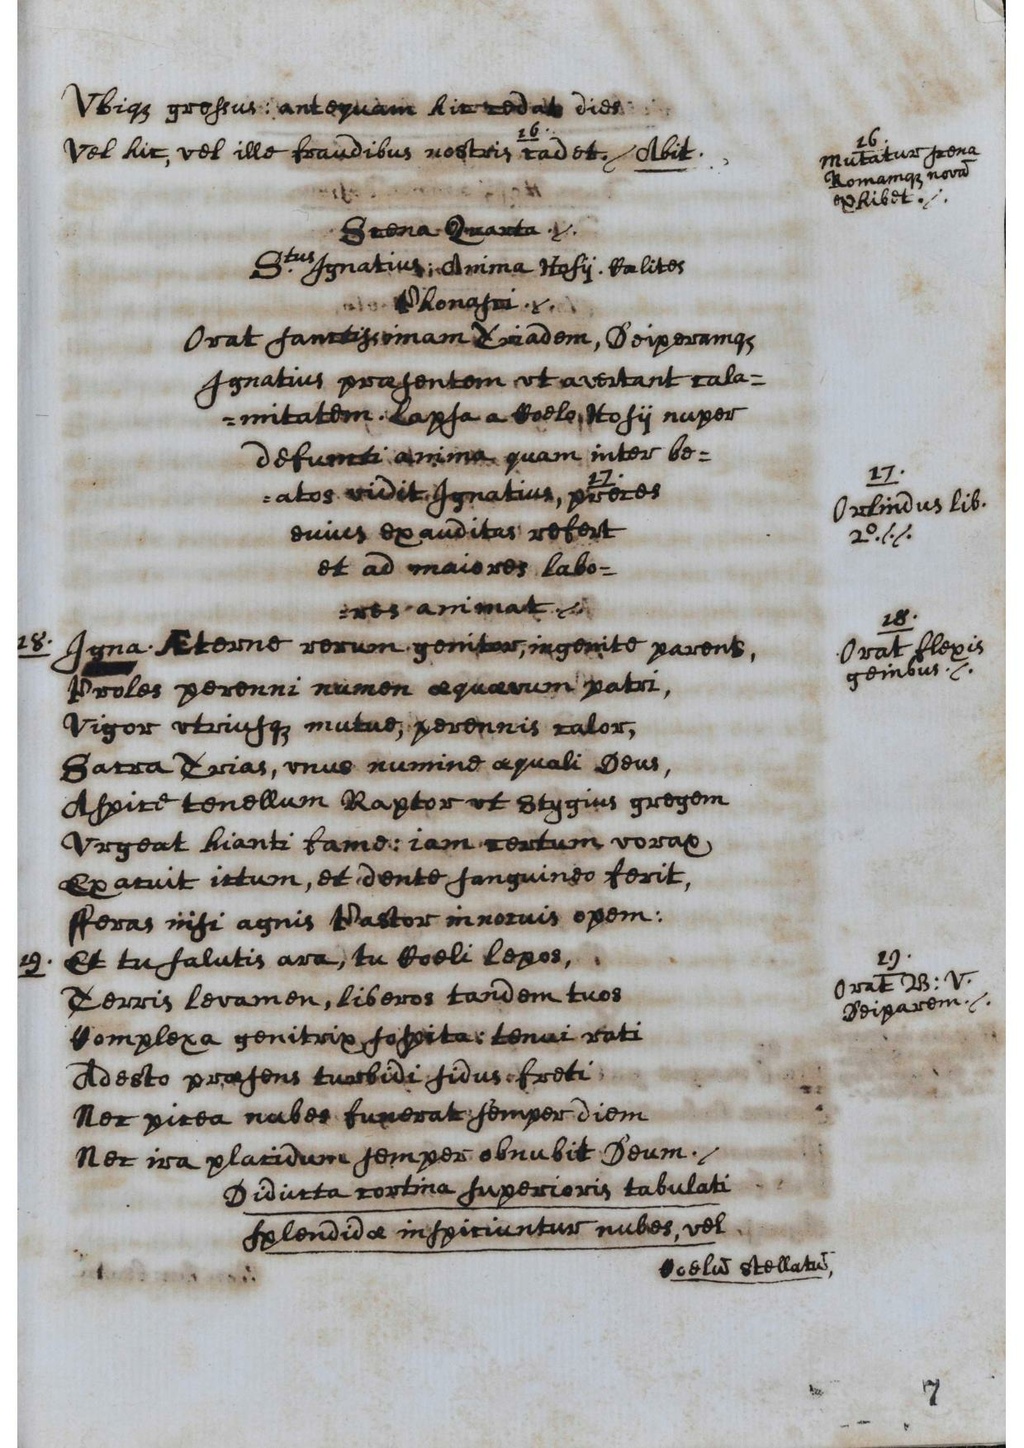 Vbiqꝫ grossus: antequam hic cedat dies
Vel hic, vel ille fraudibus nostris cadet. / Abit.
16.
16.
Mutatur scena
Romamqꝫ novā
exhibet ./.
Scena Quarta ./.
S.tus Ignatius; Anima Hosij. Cœlites
Phonasci ./.
Orat sanctissimam Triadem, Deiperamqꝫ
Ignatius præsentem vt avertant cala=
=mitatem. Lapsa a Coelo Hosij nuper
defuncti anima quam inter be=
17.
=atos vidit Ignatius, preces
17.
Orlindus lib.
2º./././.
euius exauditas refert
et ad maiores labo=
=res animat ./.
18. Igna. Æterne rerum genitor, ingenite parens,
18.
Orat flexis
genibus ./.
Proles perenni numen æquævum patri,
Vigor vtriusqꝫ mutue, perennis calor,
Sacra Trias, vnus numine æquali Deus,
Aspice tenellum Raptor vt Stygius gregem
Vrgeat hianti fame: iam certum vorax
Exacuit ictum, et dente sanguineo ferit,
Fferas nisi agnis Pastor innocuis opem:
19. Et tu salutis ara, tu Coeli lepos,
19.
Orat B: V.
Deiparem ./.
Terris levamen, liberos tandem tuos
Complexa genitrix sospita: tenui rati
Adesto præsens turbidi sidus freti
Nec picea nubes funerat semper diem
Nec ira placidum semper obnubit Deum. /
Diducta cortina superioris tabulati
splendidæ inspiciuntur nubes, vel
Coelū stellatū,
7